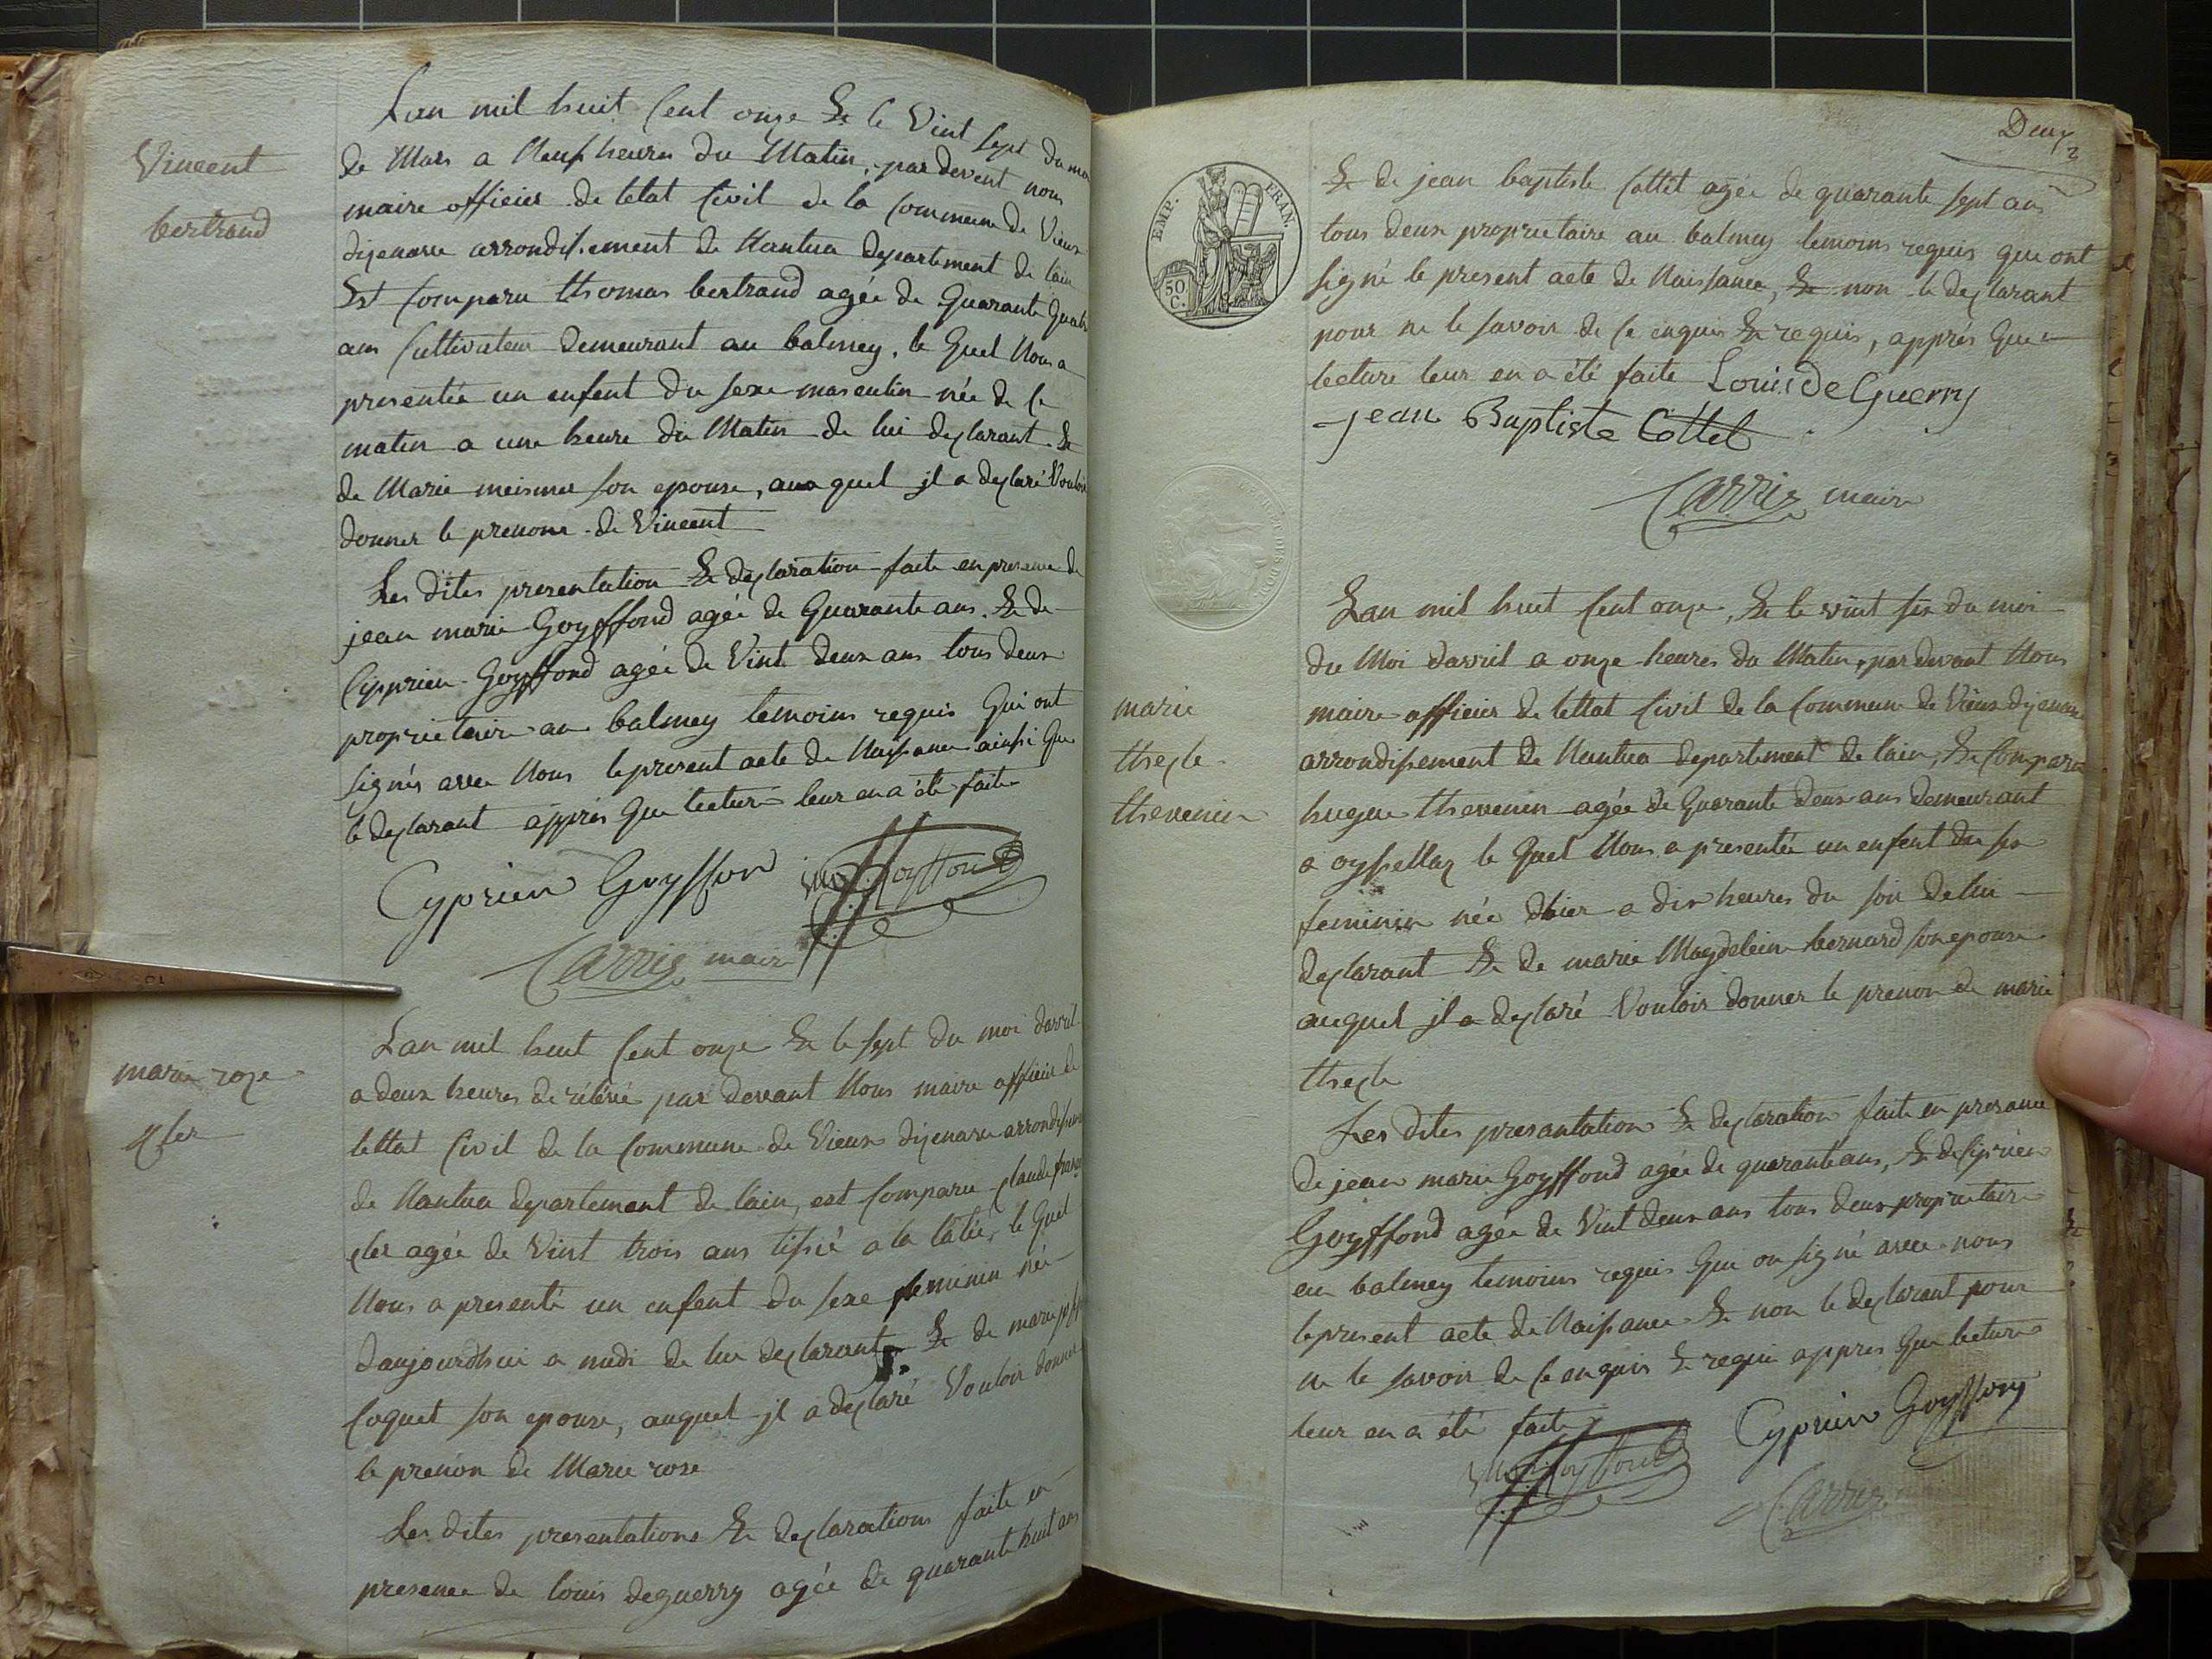 Vincent
bertrand
Lan mil huit Cent onze & le Vint Sept du moi
de Mars a Neuf heures du Matin, par devent nous
maire officier de letat Civil de la Commune de Vieux
dizenave arrondissement de Nantua departement de lain
Est Comparu thomas bertrand agée de Quarante Quatre
ans Cultivateur demeurant au balmey, le Quel Nous a
presentée un enfent du sexe masculin née de Ce
matin a une heure du Matin de lui declarant &
de Marie son epouse, auquel jl a declaré Vouloir
donner le prenome de Vincent
Les dites presentation & declaration faite en presence de
jean marie Goyffond agée de Quarante ans. & de
Cipprien Goyffond agée de Vint deux ans tous deux
proprietaire au balmey temoins requis Qui ont
signés avec Nous le present acte de Naissance ainsi Que
le declarant apprés Que lecture leur en a été faite
Cyprien Goyffon
Goyffond
Carrier maire
marie roze
Cler
Lan mil huit Cent onze & le sept du moi davril
a deux heures de rélévé par devant Nous maire officier de
lettat Civil de la Commune de Vieux dizenave arrondissement
de Nantua departement de lain, est Comparu Claude
Cler agée de Vint trois ans tissié a le Quel
Nous a presenté un enfent du sexe feminin née
daujourdhui a midi de lui declarant & de marie
Coquet son epouse, auquel jl a declaré Vouloir donner
le prenon de Marie rose
Les dites presentations & declarations faite en
presence de louis deguerry agée de quarante huit ans
Deux
2
EMP. FRIN.
50 C.
& de jean baptiste Cottet agée de quarante sept ans
tous deux proprietaire au balmey temoins requis qui ont
signé le present acte de Naissance, & non le declarant
pour ne le savoir de Ce enquis & requis, apprés Que
lecture leur en a été faite Louis deGuerry
jean Baptiste Cottet
Carrier maire
marie
thecle
thevenin
Lan mil huit Cent onze, & le vint six du moi
du Moi davril a onze heures du Matin, par devant Nous
maire officier de lettat Civil de la Commune de Vieux dizenave
arrondissement de Nantua departement de lain, & Comparu
hugue thevenin agée de Quarante deux ans demeurant
a oyssellaz le Quel Nous a presentée un enfent du sex
feminin née dhier a dix heures du soir de lui
declarant & de marie Magdeleine bernard son epouse
auquel jl a declaré Vouloir donner le prenon de marie
thecle
Les dites presantation & declaration faite en presance
de jean marie Goyffond agée de quarante ans, & de Ciprien
Goyffond agée de Vint deux ans tous deux proprietaire
au balmey temoins requis Qui on signé avec nous
le present acte de Naissance & non le declarant pour
ne le savoir de Ce enquis & requis appres Que lecture
leur en a été faite
Goyffond
Cyprien Goyffon
Carrier